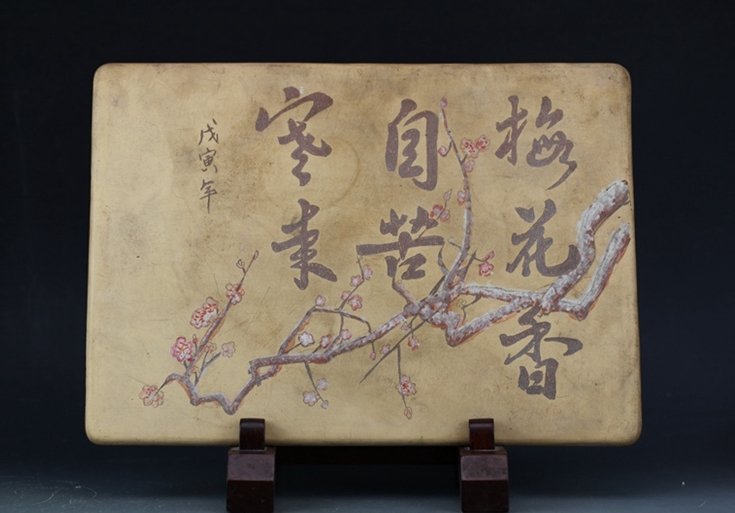 梅花香
自苦
寒来
戊寅年